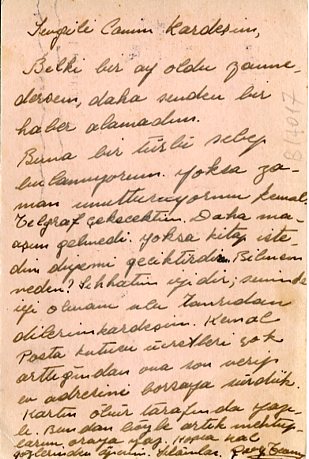 Sevgili Canım Kardeşim,
Belki bir ay oldu zanne-
dersem, daha senden bir
haber alamadım.
Buna bir türlü sebep
bulamıyorum. yoksa za-
man unutturuyormu Kemal,
Telgraf çekecektim. Daha ma-
aşım gelmedi. yoksa kitap iste-
dim diyemi geciktirdin. Bilmem
neden? Sıhhatım iyidir; seninde
iyi olmanı ulu Tanrıdan
dilerim kardeşim. Kemal
Posta kutusu ücretleri çok
arttığından ona son verip
ev adresini borsaya sürdük.
Kartın öbür tarafında yazı-
lı. Bundan böyle artık mektup-
larını oraya yaz. Hopia kal
gözlerinden öperim. Selamlar.
81407